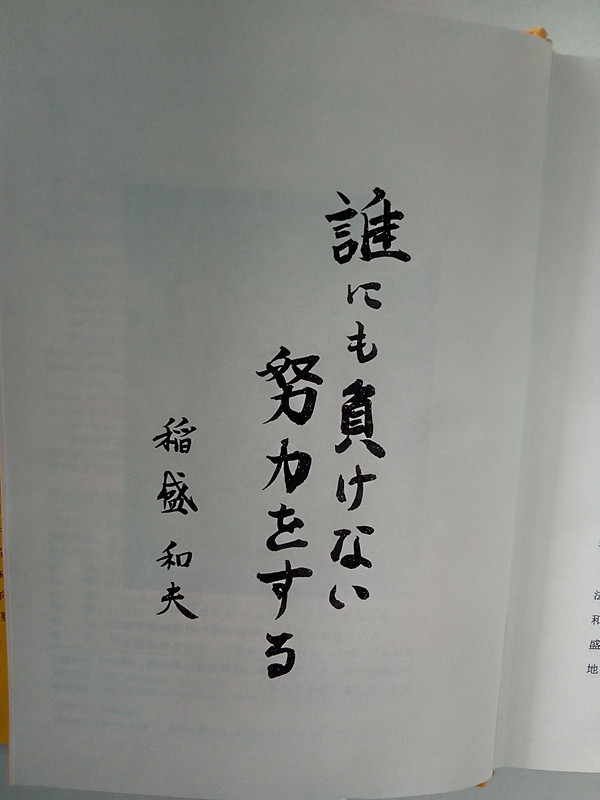 誰にも負けない
努力をする
稲盛和夫